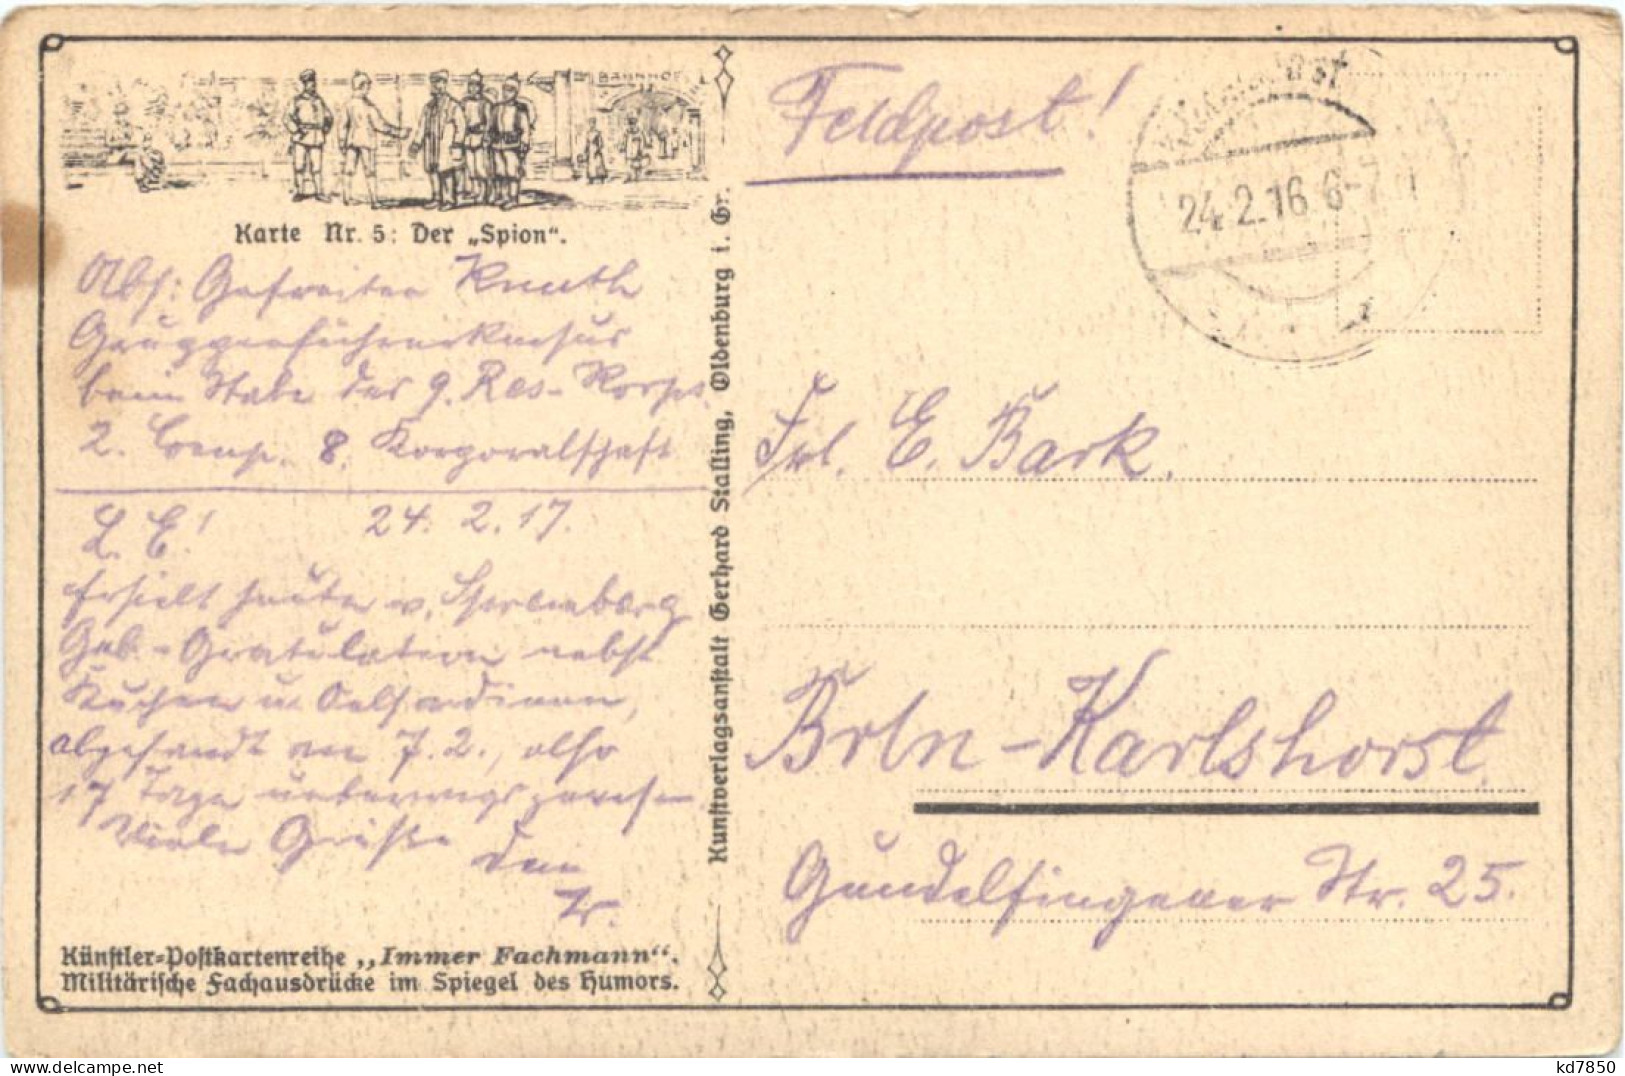 BAHNHOF
Karte Nr. 5: Der „Spion“.
Abs: Gefreiter Knuth
Gruppenführerkursus
beim Stabe des 9. Res-Korps.
2. Comp. 8. Korporalschaft
L. E! 24. 2. 17.
Erhielt heute v.
Geb-Gratulation nebst
Kuchen u. Oelsardinen,
abgesandt am 7.2., also
17 Tage unterwegs gewesen
Viele Grüße Dein
Kunstverlagsanstalt Gerhard Stalling, Oldenburg i. Gr.
Künstler-Postkartenreihe „Immer Fachmann“.
Militärische Fachausdrücke im Spiegel des Humors.
Feldpost!
24.2.16 6-7
Frl. E. Bark.
Brln-Karlshorst
Gundelfingener Str. 25.
kd7850